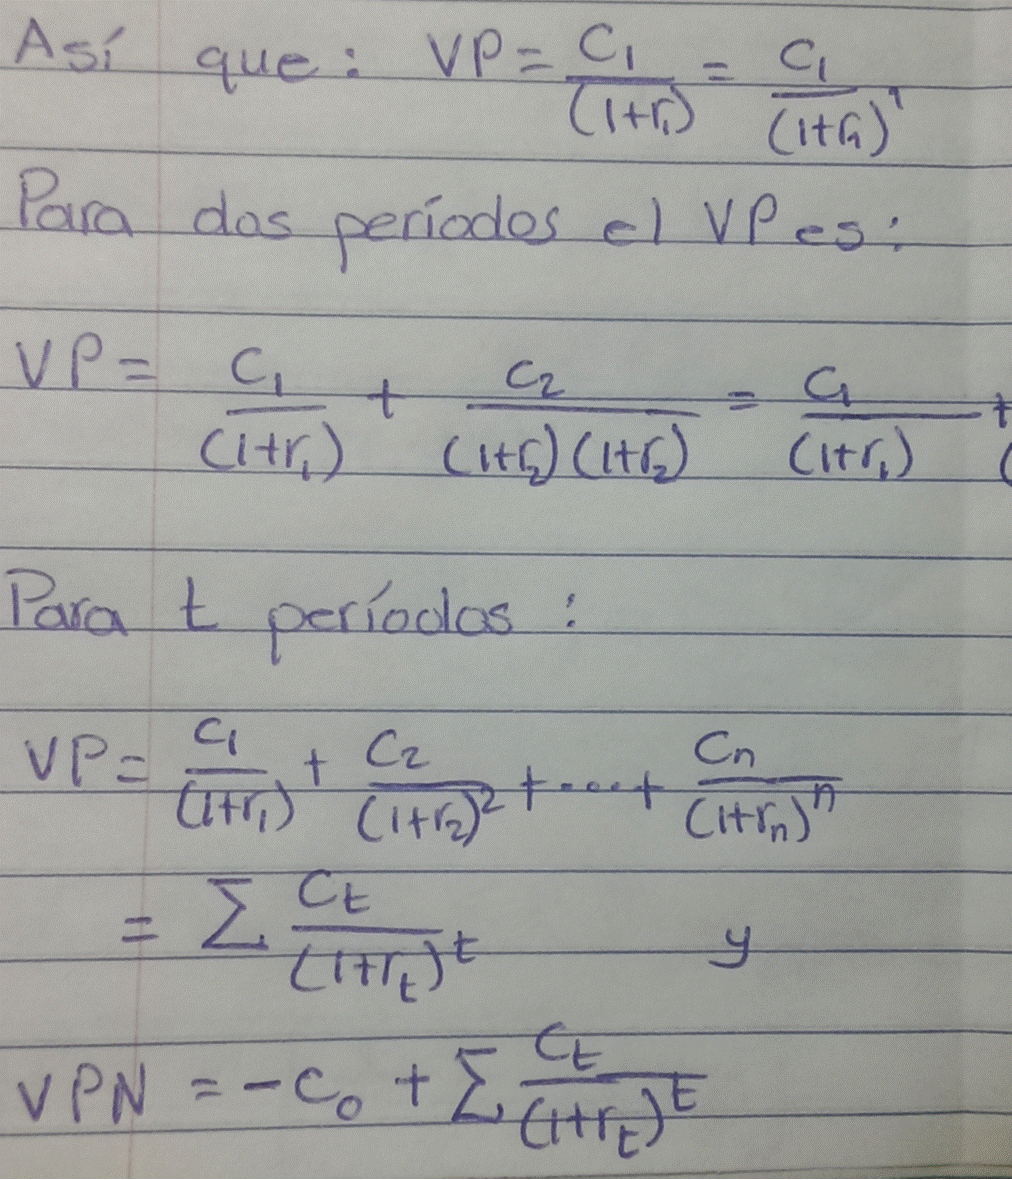 Así que: VP = C₁/(1+r₁) = C₁/(1+r₁)¹
Para dos períodos el VP es:
VP = C₁/(1+r₁) + C₂/(1+r₂)(1+r₂) = C₁/(1+r₁) + (
Para t períodos :
VP = C₁/(1+r₁) + C₂/(1+r₂)² + .... + Cₙ/(1+rₙ)ⁿ
= Σ Cₜ/(1+rₜ)ᵗ y
VPN = -C₀ + Σ Cₜ/(1+rₜ)ᵗ